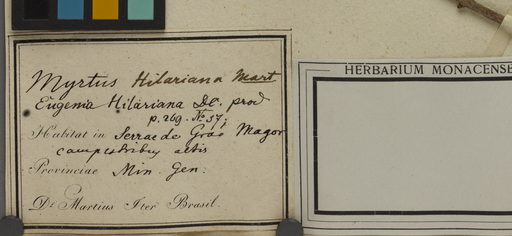 Myrtus Hilariana Mart
Eugenia Hilariana DC. prod
p. 269. No 57;
Habitat in Serra de Grao Magor
campestribus altis
Provinciae Min. Gen:
Dr Martius Iter Brasil.
HERBARIUM MONACENSE